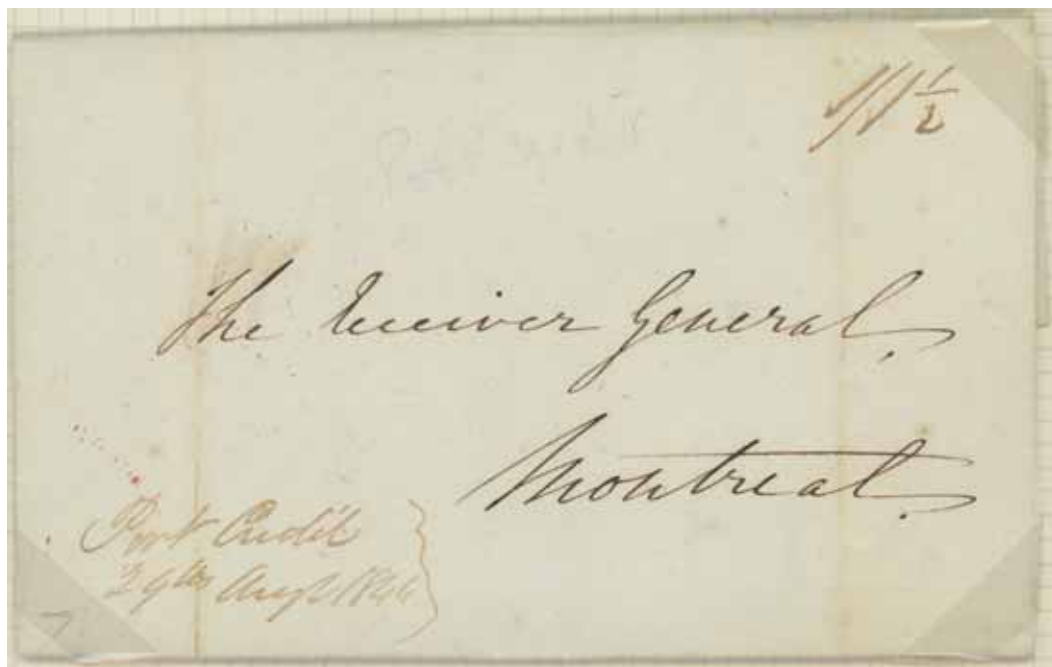 1/1½
The Receiver General,
Montreal.
Port Credit
29th Augt 1846